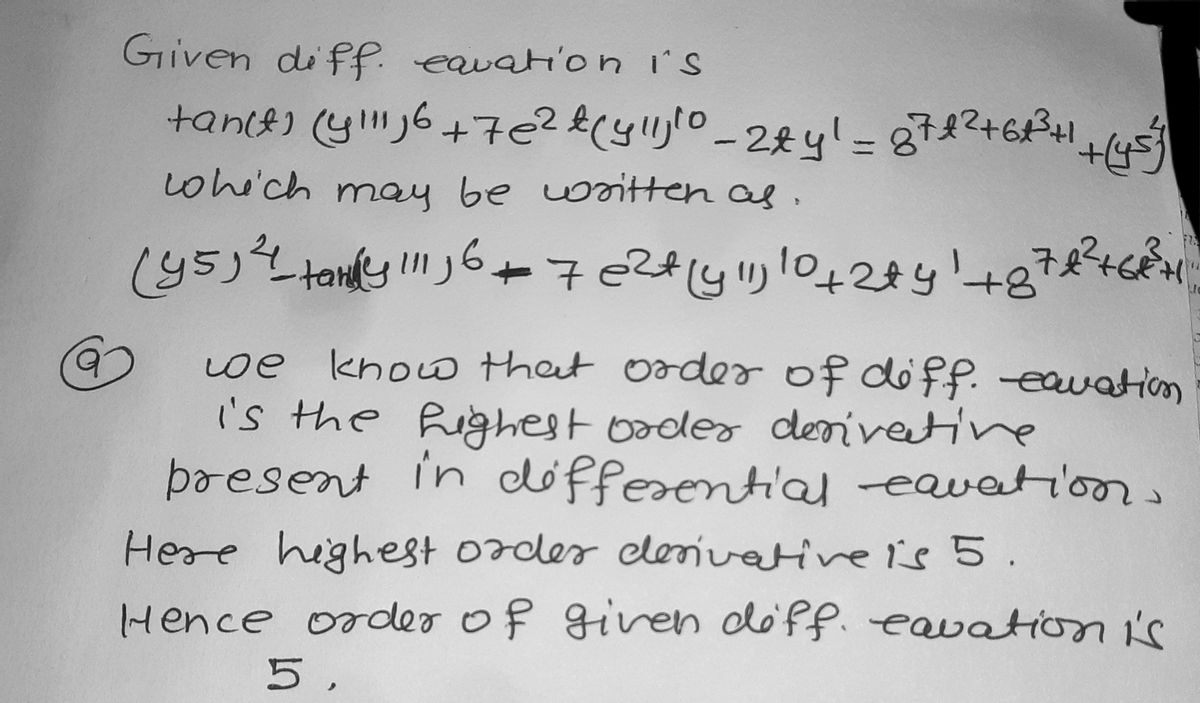 Given diff. eauation is
tan(t) (y''')6 + 7e2t(y'')10 - 2ty' = 87t2+6t3+1 + (y5)4
which may be written as.
(y5)4 - tant(y''')6 - 7 e2t(y'')10 + 2ty' + 87t2+6t3+1
(a) we know that order of diff. eauation
is the highest order derivative
present in differential eauation.
Here highest order derivative is 5.
Hence order of given diff. eauation is
5.